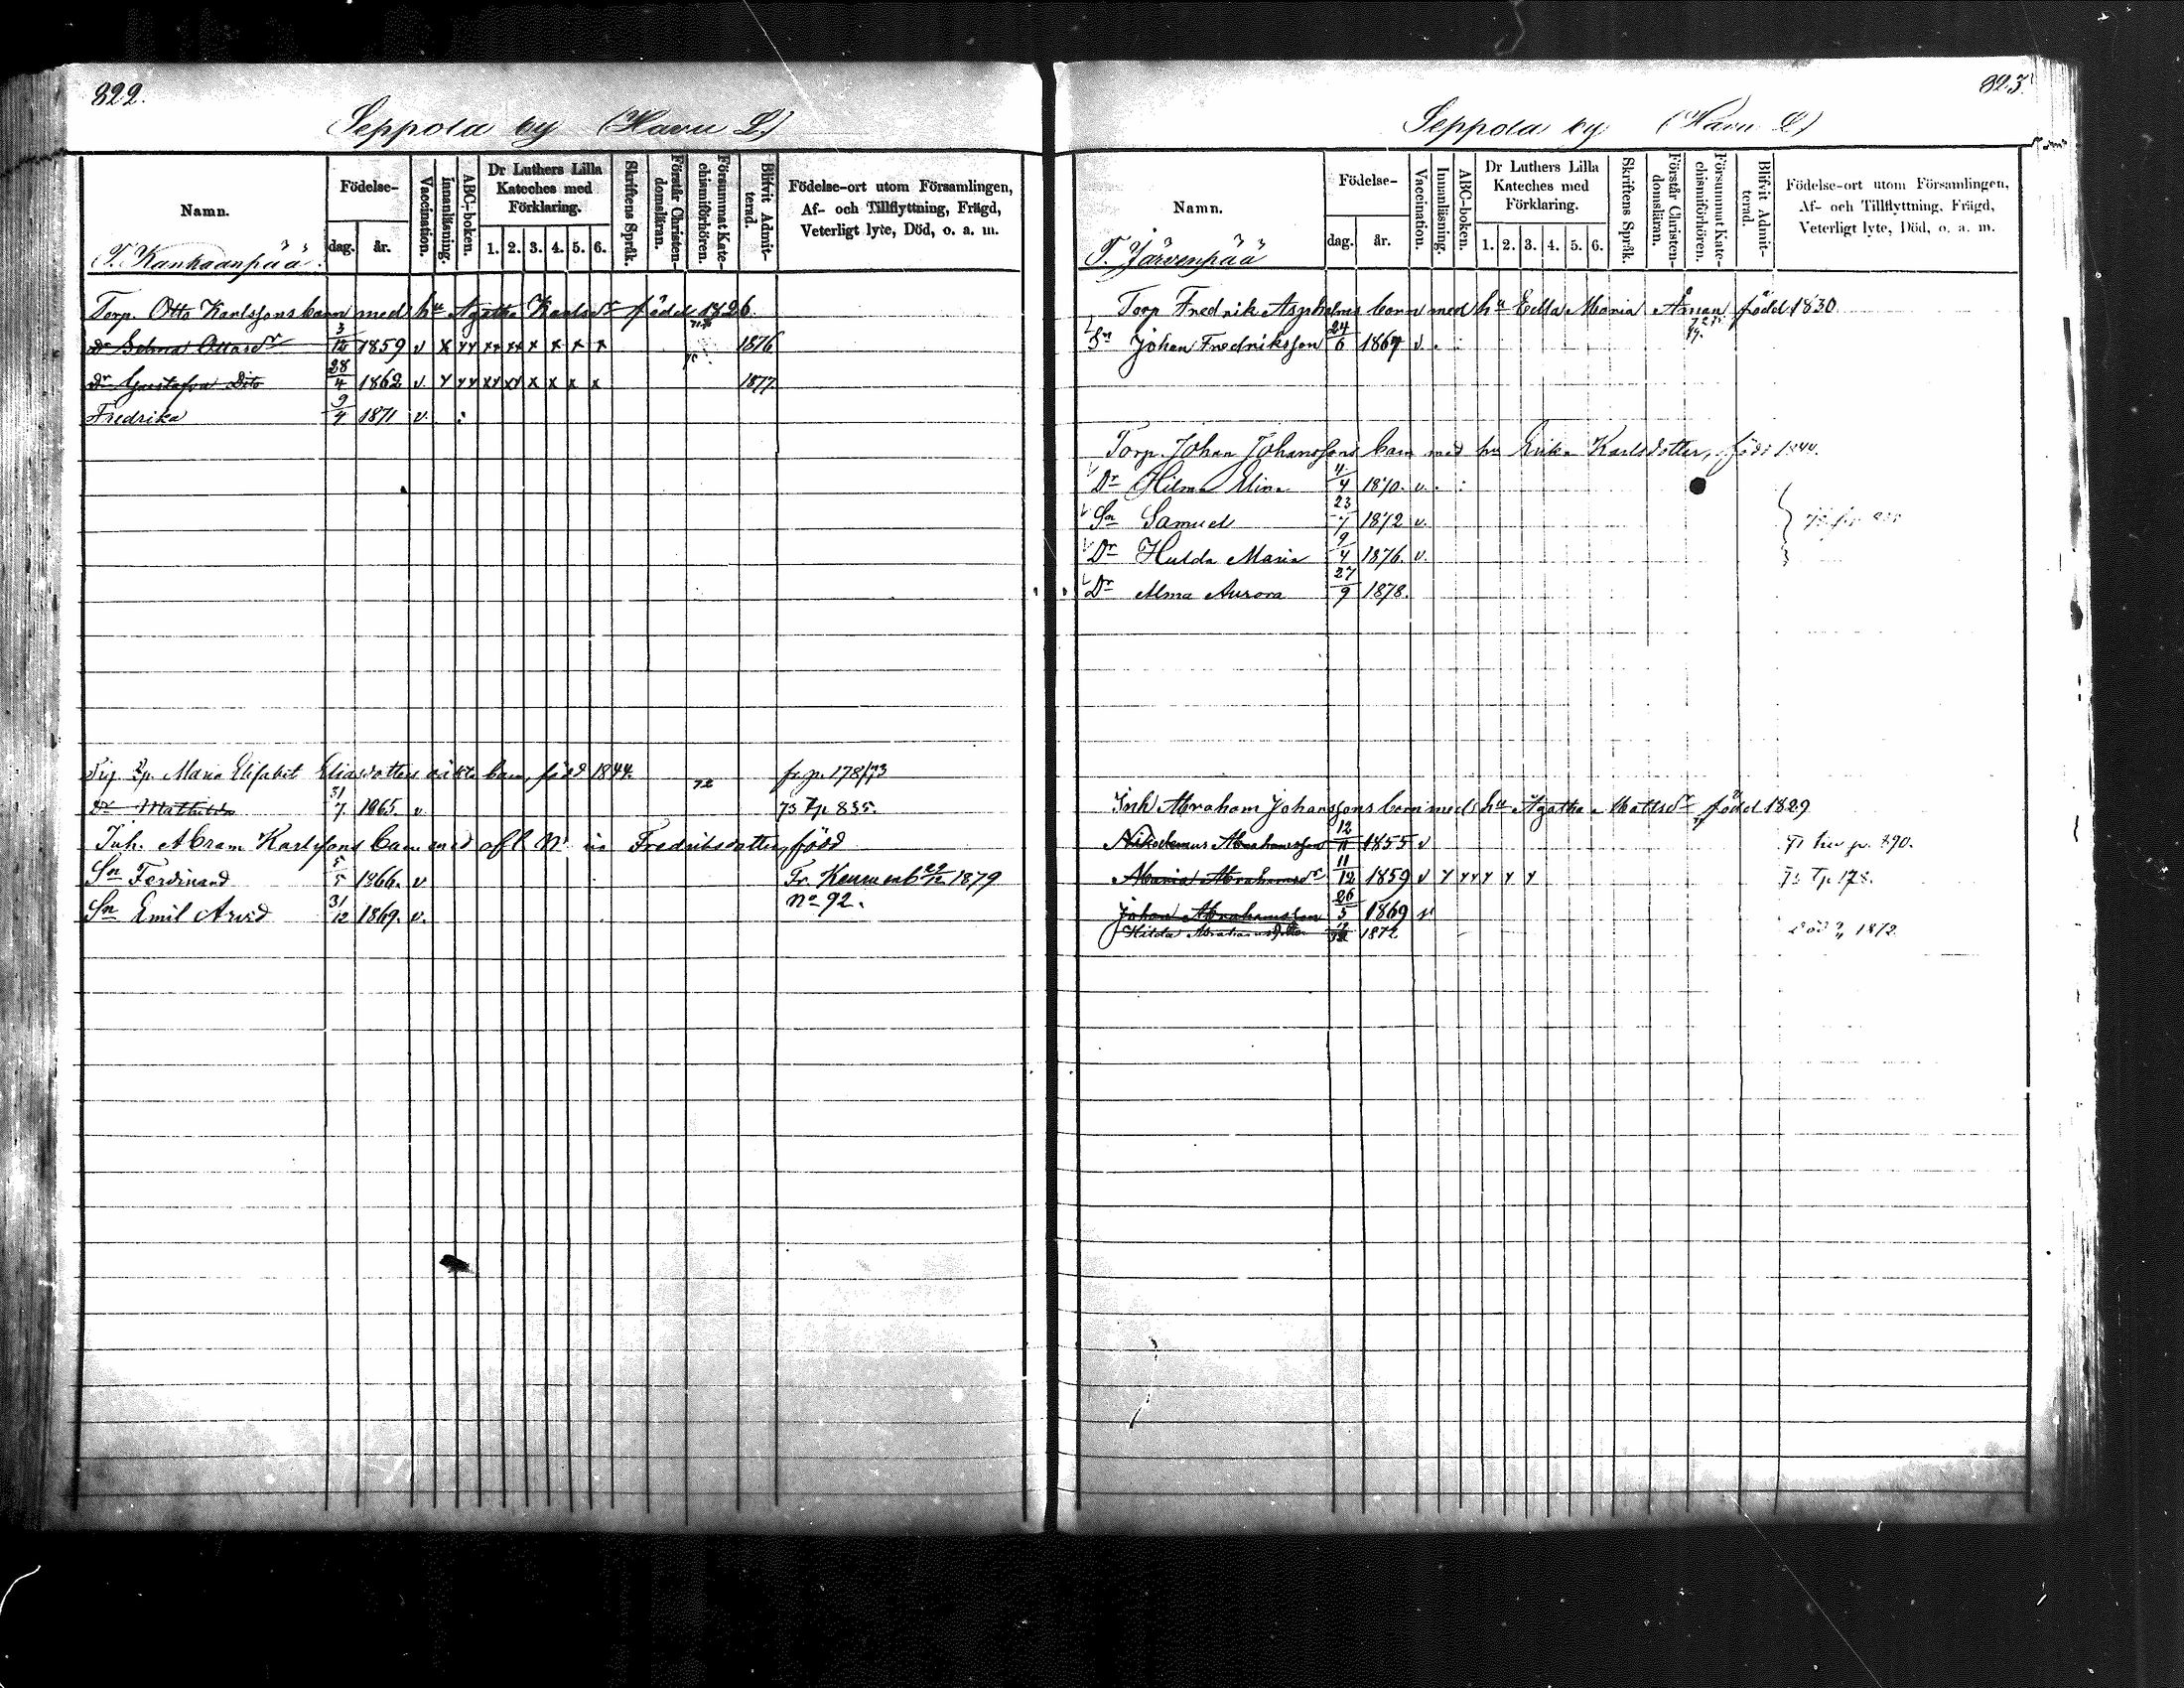 822.
Seppola by (Havu L.)
Namn.
Födelse-
dag. år.
Vaccination.
Innanläsning.
ABC-boken.
Dr Luthers Lilla Kateches med Förklaring.
1. 2. 3. 4. 5. 6.
Skriftens Språk.
Förstår Christen-domsläran.
Försummat Kate-chismiförhören.
Blifvit Admit-terad.
Födelse-ort utom Församlingen,
Af- och Tillflyttning, Frägd,
Veterligt lyte, Död, o. a. m.
T. Kankaanpää
Torp. Otto Karlssons barn med hu Agatha Karlsdr född 1826.
Dr Selma Ottosdr 3/12 1859 v x xx xx xx x x x x 1876
Dr Gustafva Dito 28/4 1862 v. x xx xx xx x x x x 1877
Fredrika 9/4 1871 v. :
Maria Elisabet Eliasdotters oäkta barn, född 1844. 72 fr. p. 178/73
Dr Mathilda 31/7 1865. v. 73 Tp 835.
Inh. Abram Karlssons barn med afl. Fredriksdotter, född
Sn Ferdinand 5/5 1866. v Fr. 1879
Sn Emil Arvid 31/12 1869. v. No 92.
823.
Seppola by (Havu L.)
Namn.
Födelse-
dag. år.
Vaccination.
Innanläsning.
ABC-boken.
Dr Luthers Lilla Kateches med Förklaring.
1. 2. 3. 4. 5. 6.
Skriftens Språk.
Förstår Christen-domsläran.
Försummat Kate-chismiförhören.
Blifvit Admit-terad.
Födelse-ort utom Församlingen,
Af- och Tillflyttning, Frägd,
Veterligt lyte, Död, o. a. m.
T. Järvenpää
Torp Fredrik Aspholms barn med hu Edla Maria Åman född 1830
Sn Johan Fredriksson 24/6 1867 v. . :
Torp. Johan Johanssons barn med hu Erika Karlsdotter, född 1844.
Dr Hilma Elina 11/4 1870. v. . :
Sn Samuel 23/7 1872 v.
Dr Hulda Maria 9/4 1876. v.
Dr Alma Aurora 27/9 1878.
Inh Abraham Johanssons barn med hu Agatha Mattsdr född 1829
Nikodemus Abrahamsson 12/11 1855 v p. 290.
Maria Abrahamsdr 11/12 1859 v x xx x x x 73 Tp 178.
Johan Abrahamsson 26/5 1869 v
Hilda Abrahamsdotter 1872 död 1872.